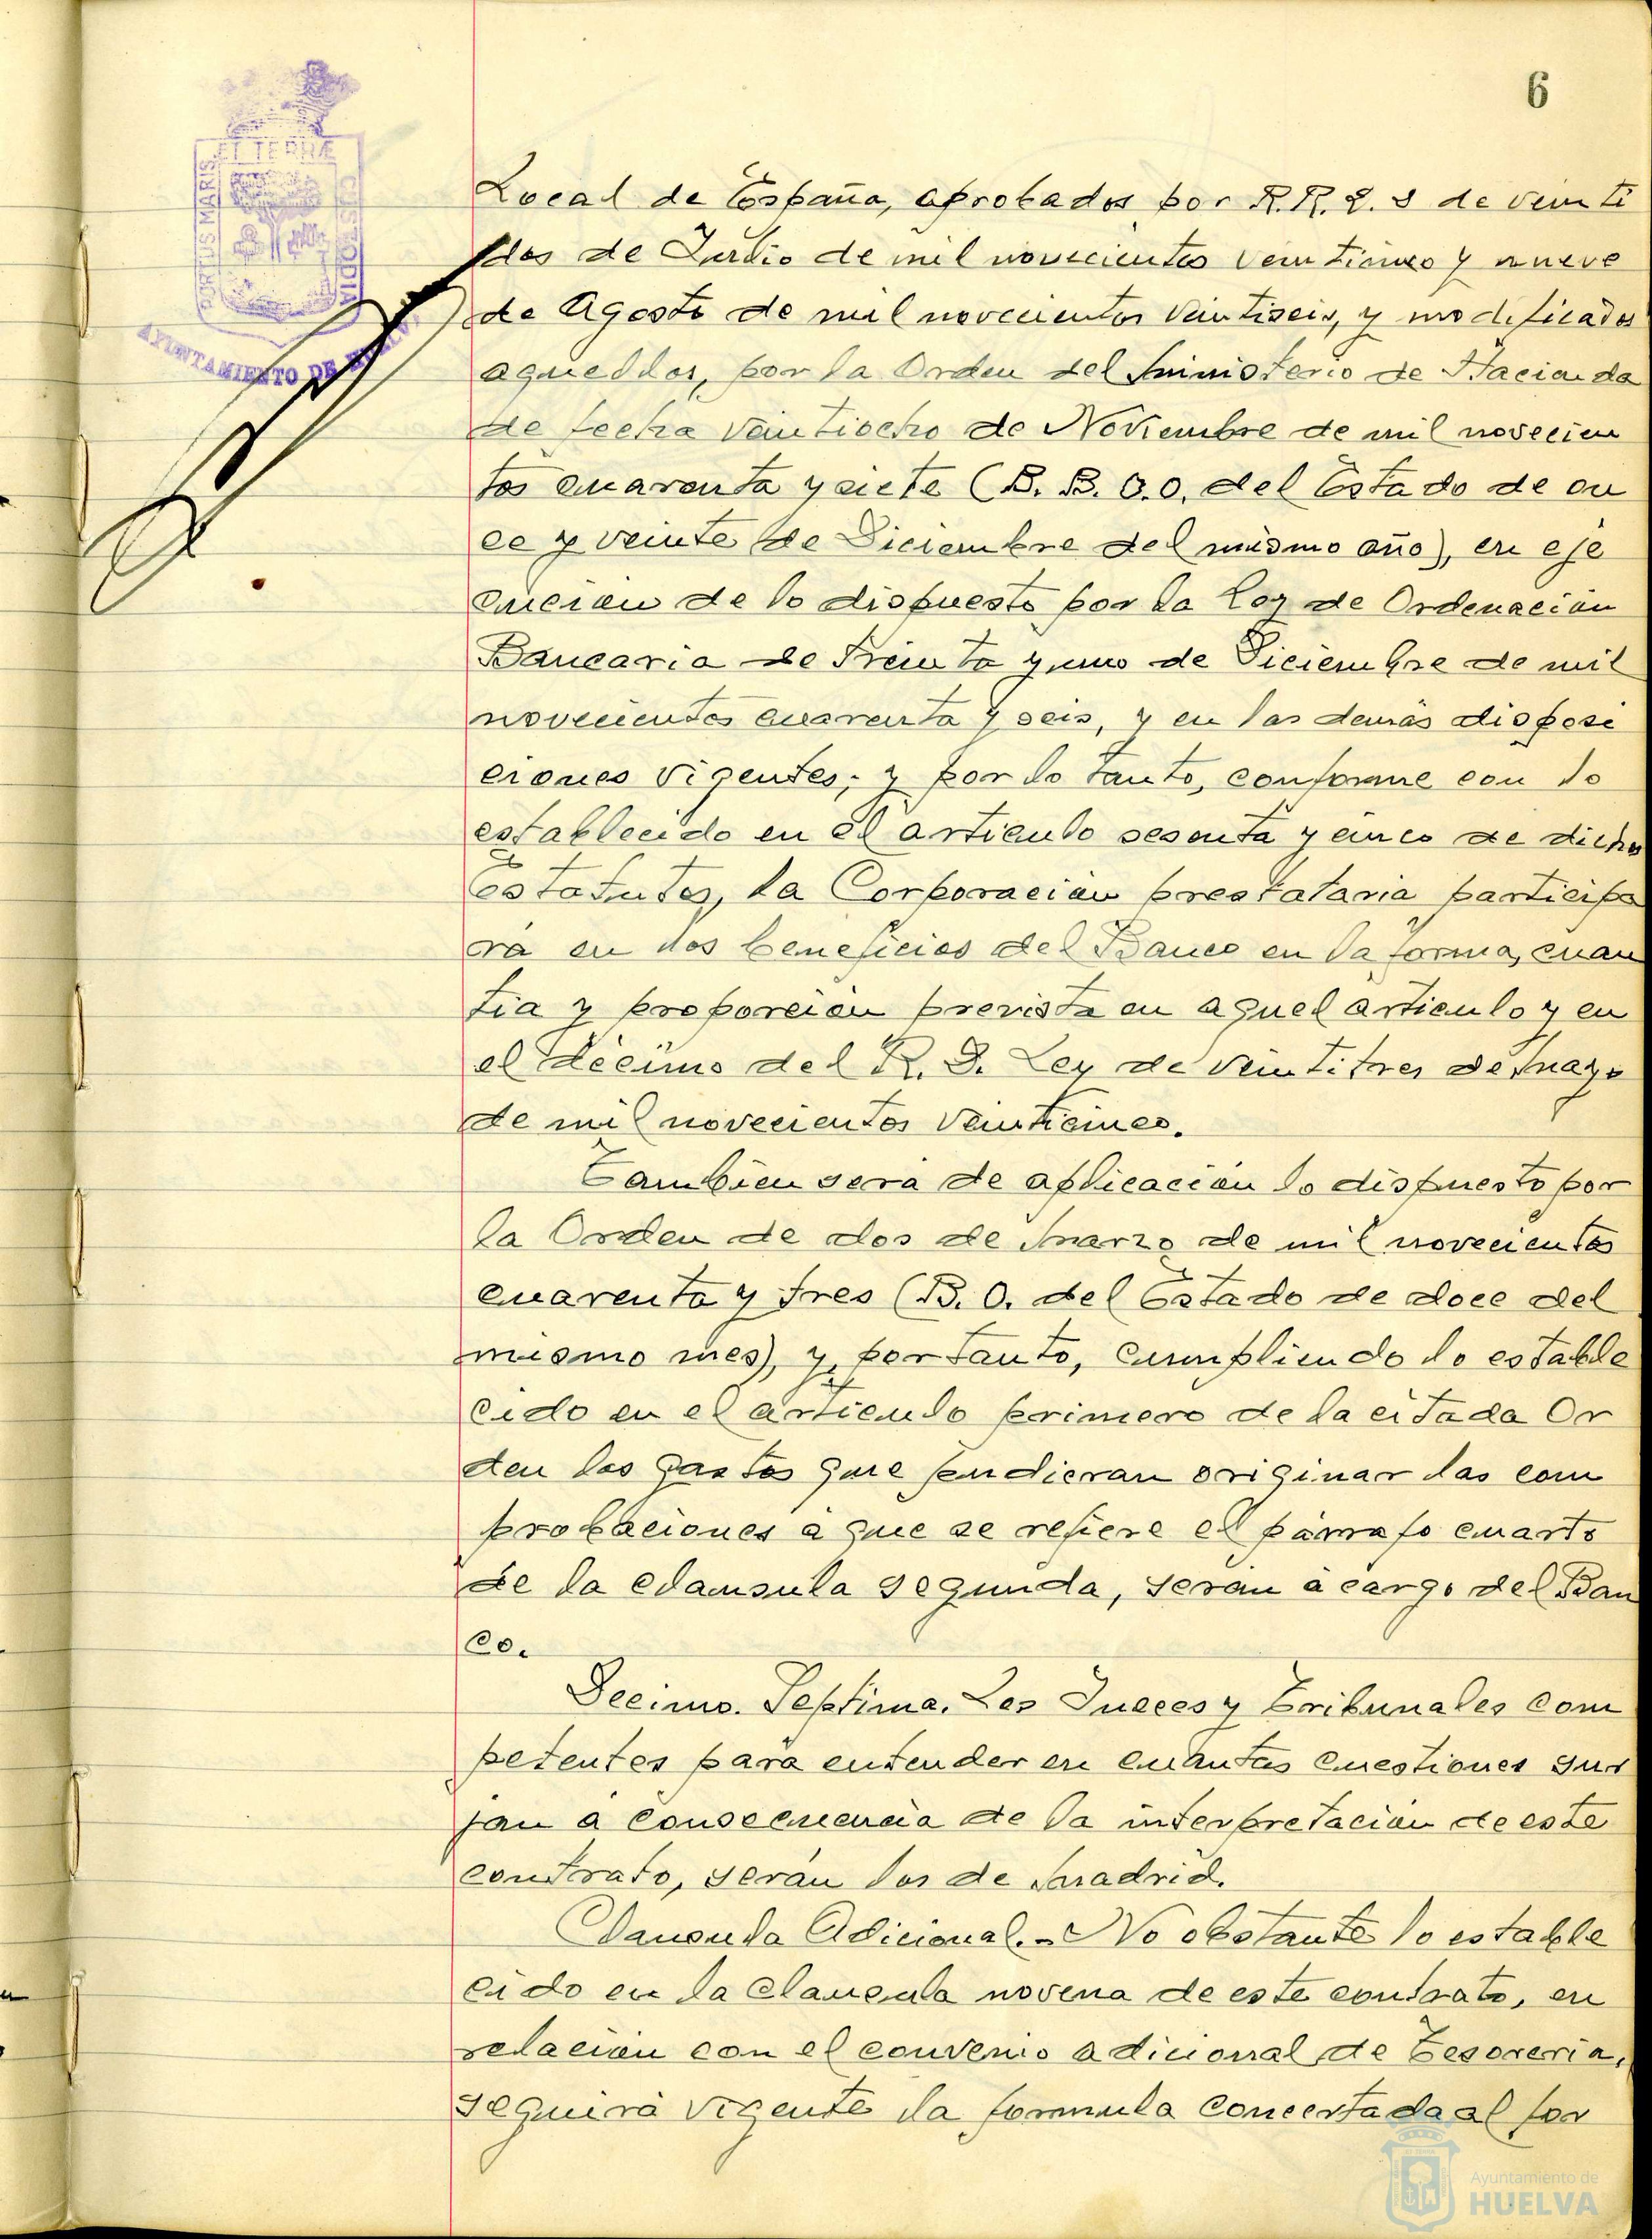 6
PORTUS MARIS
ET TERRÆ
CUSTODIA
AYUNTAMIENTO DE HUELVA
Local de España, aprobados por R.R. D. D de veinti
dos de Julio de mil novecientos veinticinco y nueve
de Agosto de mil novecientos veintiseis, y modificados
aquellos, por la Orden del Ministerio de Hacienda
de fecha veintiocho de Noviembre de mil novecien
tos cuarenta y siete (B. B. O.O. del Estado de on
ce y veinte de Diciembre del mismo año), en eje
cucion de lo dispuesto por la Ley de Ordenación
Bancaria de Treinta y uno de Diciembre de mil
novecientos cuarenta y seis, y en las demás disposi
ciones vigentes; y por lo tanto, conforme con lo
establecido en el articulo sesenta y cinco de dichos
Estatutos, la Corporación prestataria participa
rá en los beneficios del Banco en la forma, cuan
tia y proporción prevista en aquel articulo y en
el décimo del R. D. Ley de veintitres de Mayo
de mil novecientos veinticinco.
Tambien será de aplicación lo dispuesto por
la Orden de dos de Marzo de mil novecientos
cuarenta y tres (B. O. del Estado de doce del
mismo mes), y, por tanto, cumpliendo lo estable
cido en el articulo primero de la citada Or
den los gastos que pudieran originar las com
probaciones a que se refiere el párrafo cuarto
de la clausula segunda, serán a cargo del Ban
co.
Decimo. Septima. Los Jueces y Tribunales com
petentes para entender en cuantas cuestiones sur
jan a consecuencia de la interpretación de este
contrato, serán los de Madrid.
Clausula Adicional.- No obstante lo estable
cido en la clausula novena de este contrato, en
relación con el convenio adicional de Tesoreria,
seguirá vigente la formula concertada al for
Ayuntamiento de
HUELVA